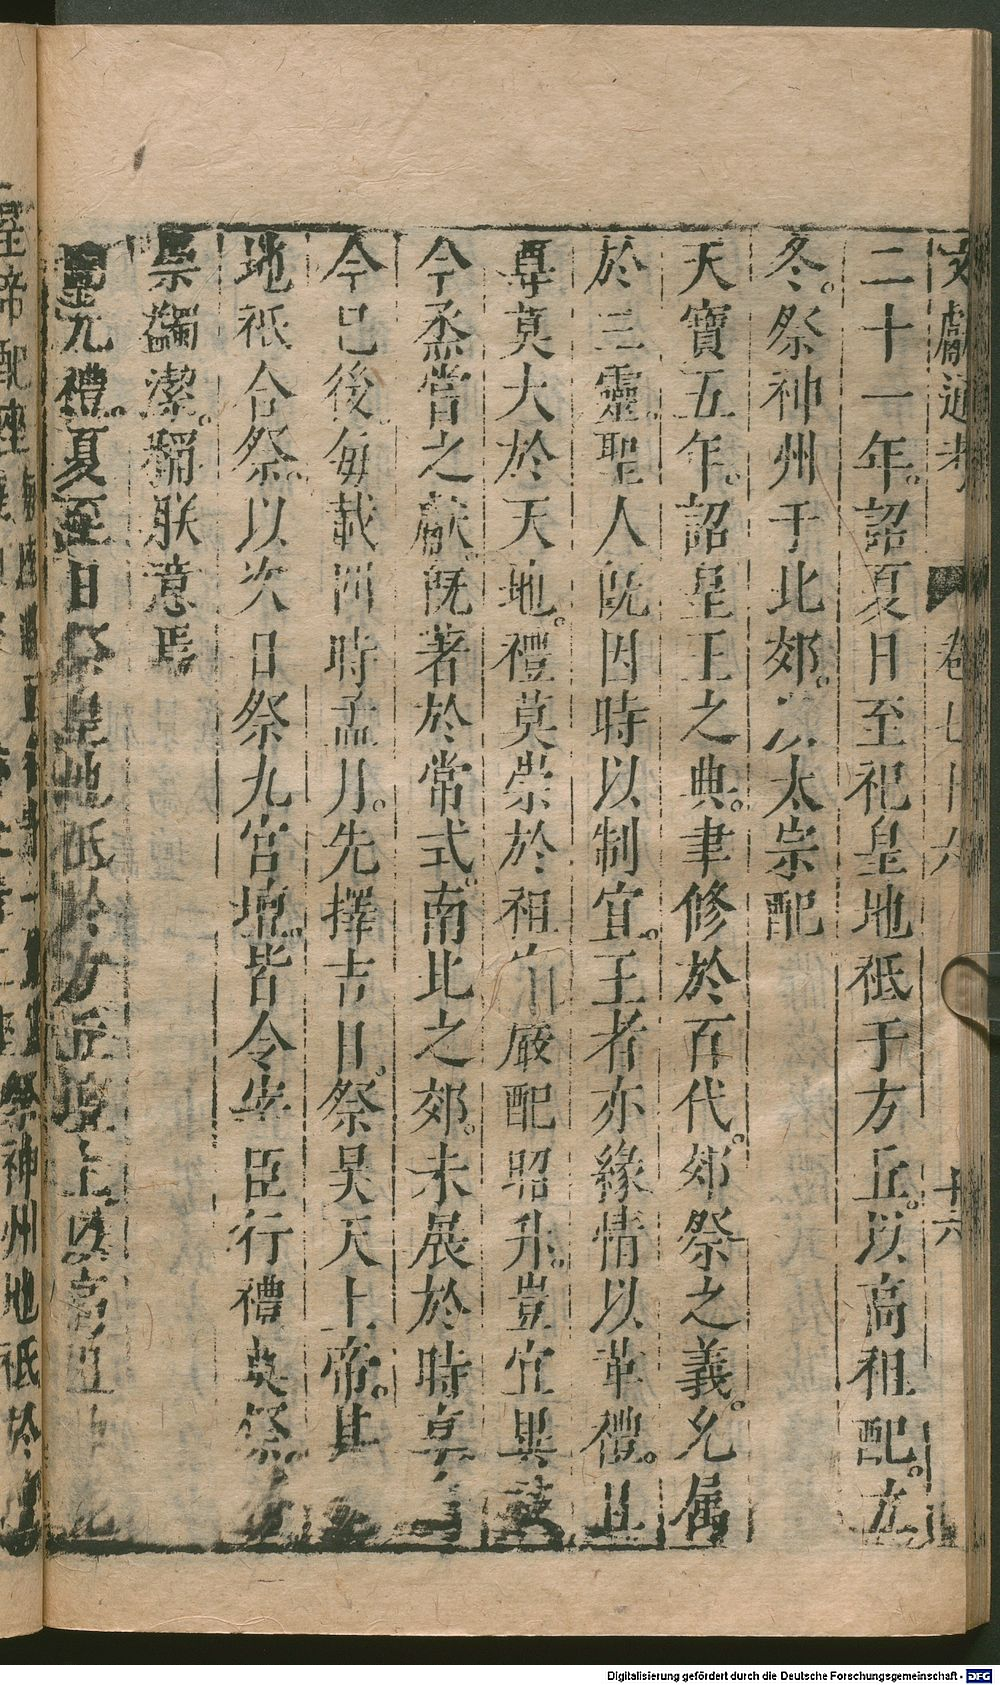 文獻通考 卷七十六 十六
二十一年。詔夏日至祀皇地祇于方丘。以高祖配。立
冬。祭神州于北郊。以太宗配
天寶五年。詔皇王之典。聿修於百代。郊祭之義。允屬
於三靈。聖人旣因時以制宜。王者亦緣情以革禮。且
尊莫大於天地。禮莫崇於祖宗嚴配昭升。豈宜異
今烝嘗之獻。旣著於常式。南北之郊。未展於時享
今已後。每載四時孟月。先擇吉日。祭昊天上帝。其
地祇合祭。以次日祭九宮壇。皆令宰臣行禮奠祭。
崇蠲潔。稱朕意焉
開元禮。夏至日祭皇地祇於方丘壇上。以高祖
皇帝配座
祭神州地祇於
Digitalisierung gefördert durch die Deutsche Forschungsgemeinschaft - DFG